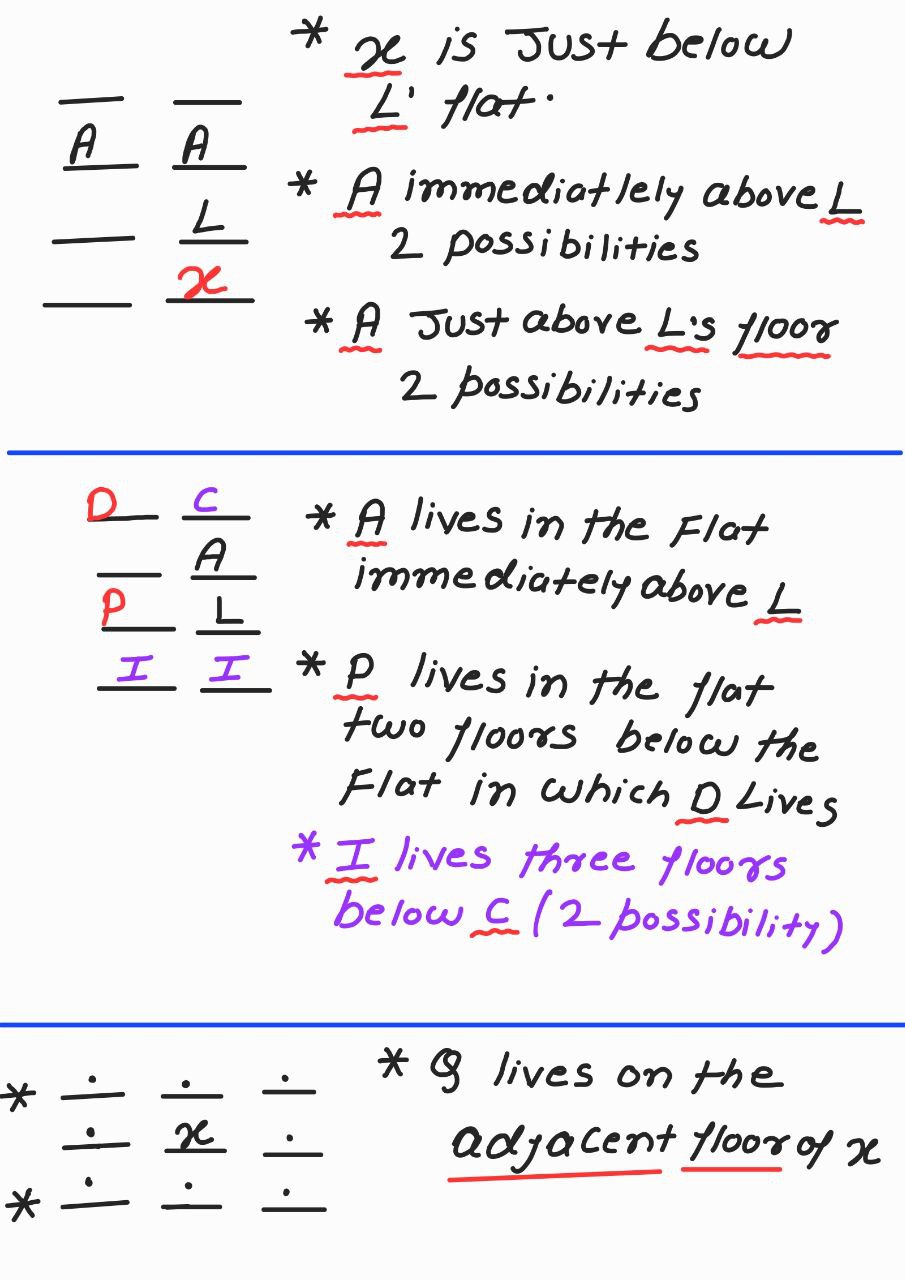 * x is Just below
L' flat.
A A
L
x
* A immediatlely above L
2 possibilities
* A Just above L's floor
2 possibilities
D C
A
P L
I I
* A lives in the Flat
immediately above L
* P lives in the flat
two floors below the
Flat in which D Lives
* I lives three floors
below C (2 possibility)
*
x
*
* Q lives on the
adjacent floor of x